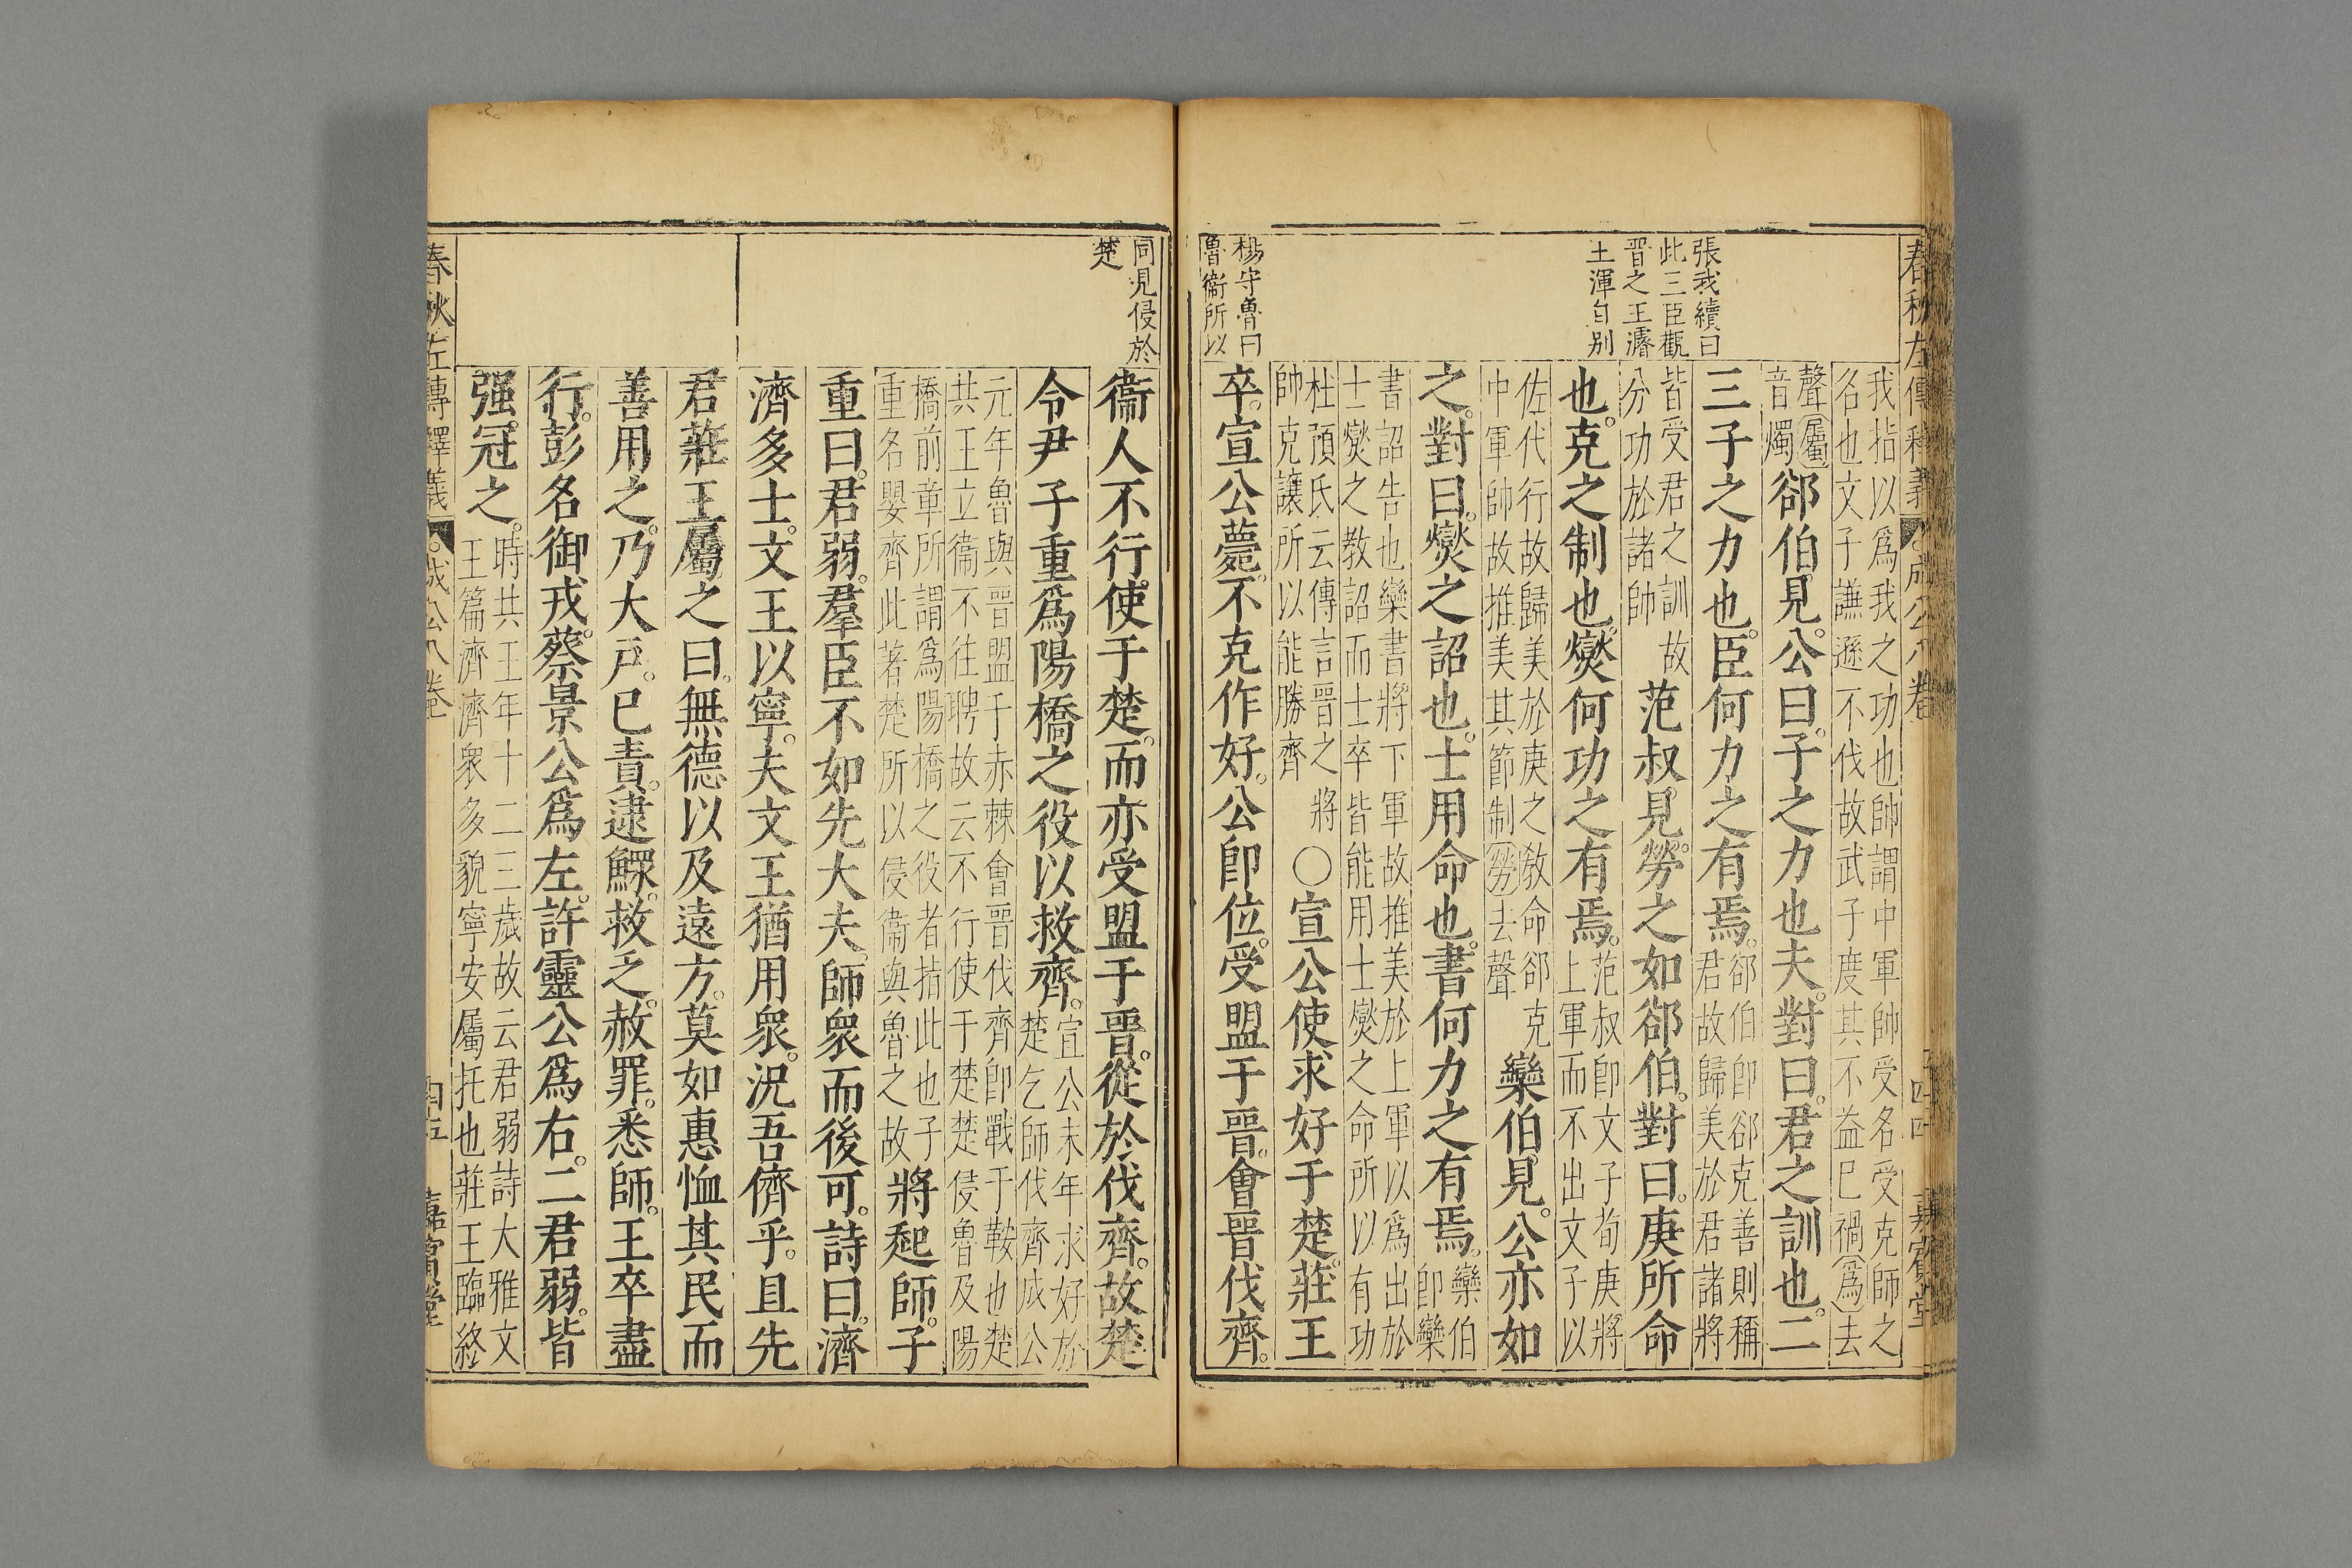 春秋左傳釋義
成公八卷
四四
嘉賓堂
張我續曰
此三臣觀
晉之王濬
王渾自別
楊守魯曰
魯衞所以
我指以爲我之功也帥謂中軍帥受名受克師之
名也文子謙遜不伐故武子度其不益巳禍爲去
聲屬
音燭
郤伯見公曰子之力也夫對曰君之訓也二
三子之力也臣何力之有焉
郤伯卽郤克善則稱
君故歸美於君諸將
皆受君之訓故
分功於諸帥
范叔見勞之如郤伯對曰庚所命
也克之制也燮何功之有焉
范叔卽文子荀庚將
上軍而不出文子以
佐代行故歸美於庚之敎命郤克
中軍帥故推美其節制勞去聲
欒伯見公亦如
之對曰燮之詔也士用命也書何力之有焉
欒伯
卽欒
書詔告也欒書將下軍故推美於上軍以爲出於
士燮之教詔而士卒皆能用士燮之命所以有功
杜預氏云傳言晉之將
帥克讓所以能勝齊
○宣公使求好于楚莊王
卒宣公薨不克作好公卽位受盟于晉會晉伐齊
同見侵於
楚
衞人不行使于楚而亦受盟于晉從於伐齊故楚
令尹子重爲陽橋之役以救齊
宣公末年求好於
楚乞師伐齊成公
元年魯與晉盟于赤棘會晉伐齊卽戰于鞍也楚
共王立衞不往聘故云不行使于楚楚侵魯及陽
橋前章所謂爲陽橋之役者指此也子
重名嬰齊此著楚所以侵衞與魯之故
將起師子
重曰君弱羣臣不如先大夫師衆而後可詩曰濟
濟多士文王以寧夫文王猶用衆況吾儕乎且先
君莊王屬之曰無德以及遠方莫如惠恤其民而
善用之乃大戶巳責逮鰥救之赦罪悉師王卒盡
行彭名御戎蔡景公爲左許靈公爲右二君弱皆
强冠之
時共王年十二三歲故云君弱詩大雅文
王篇濟濟衆多貌寧安屬托也莊王臨終
春秋左傳釋義
成公八卷
四五
嘉賓堂